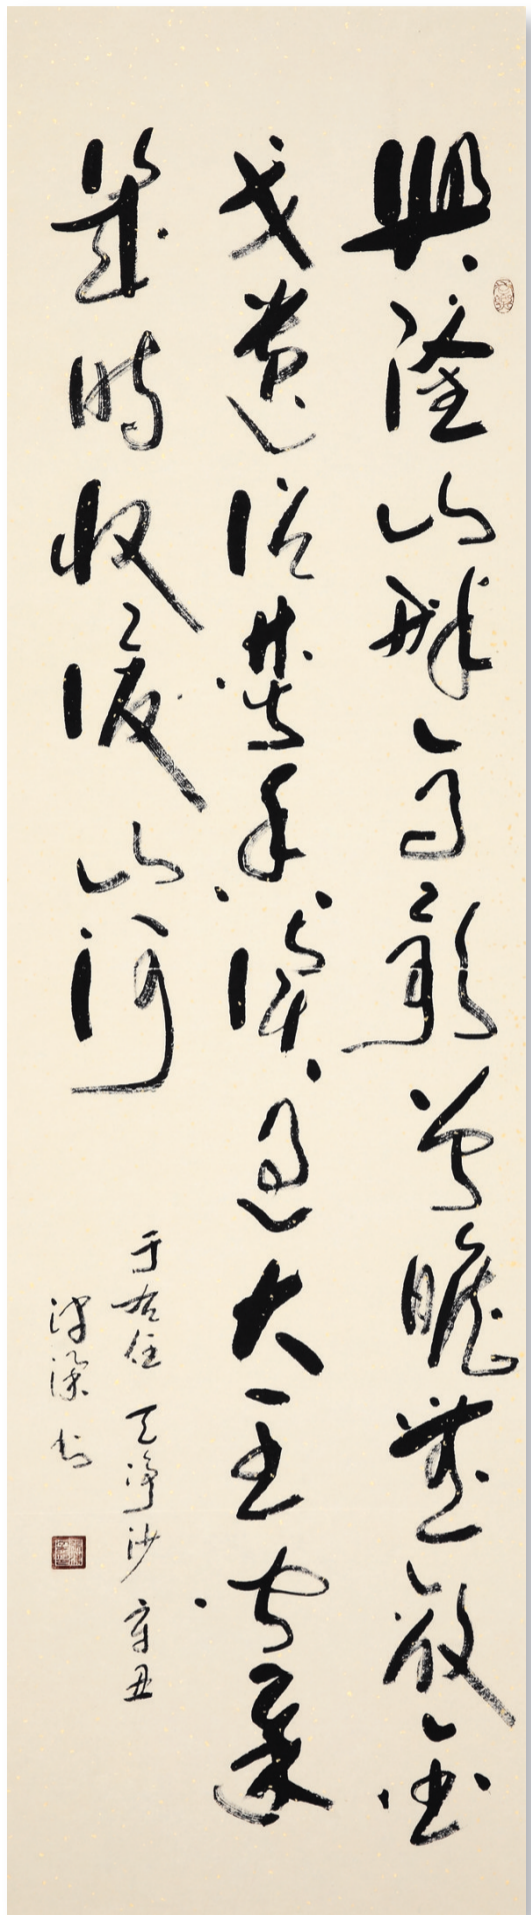 興隆山畔高歌曾瞻無敵金
戈遺詔焚香讀過大王問我
幾時收復山河
于右任天淨沙辛丑
书